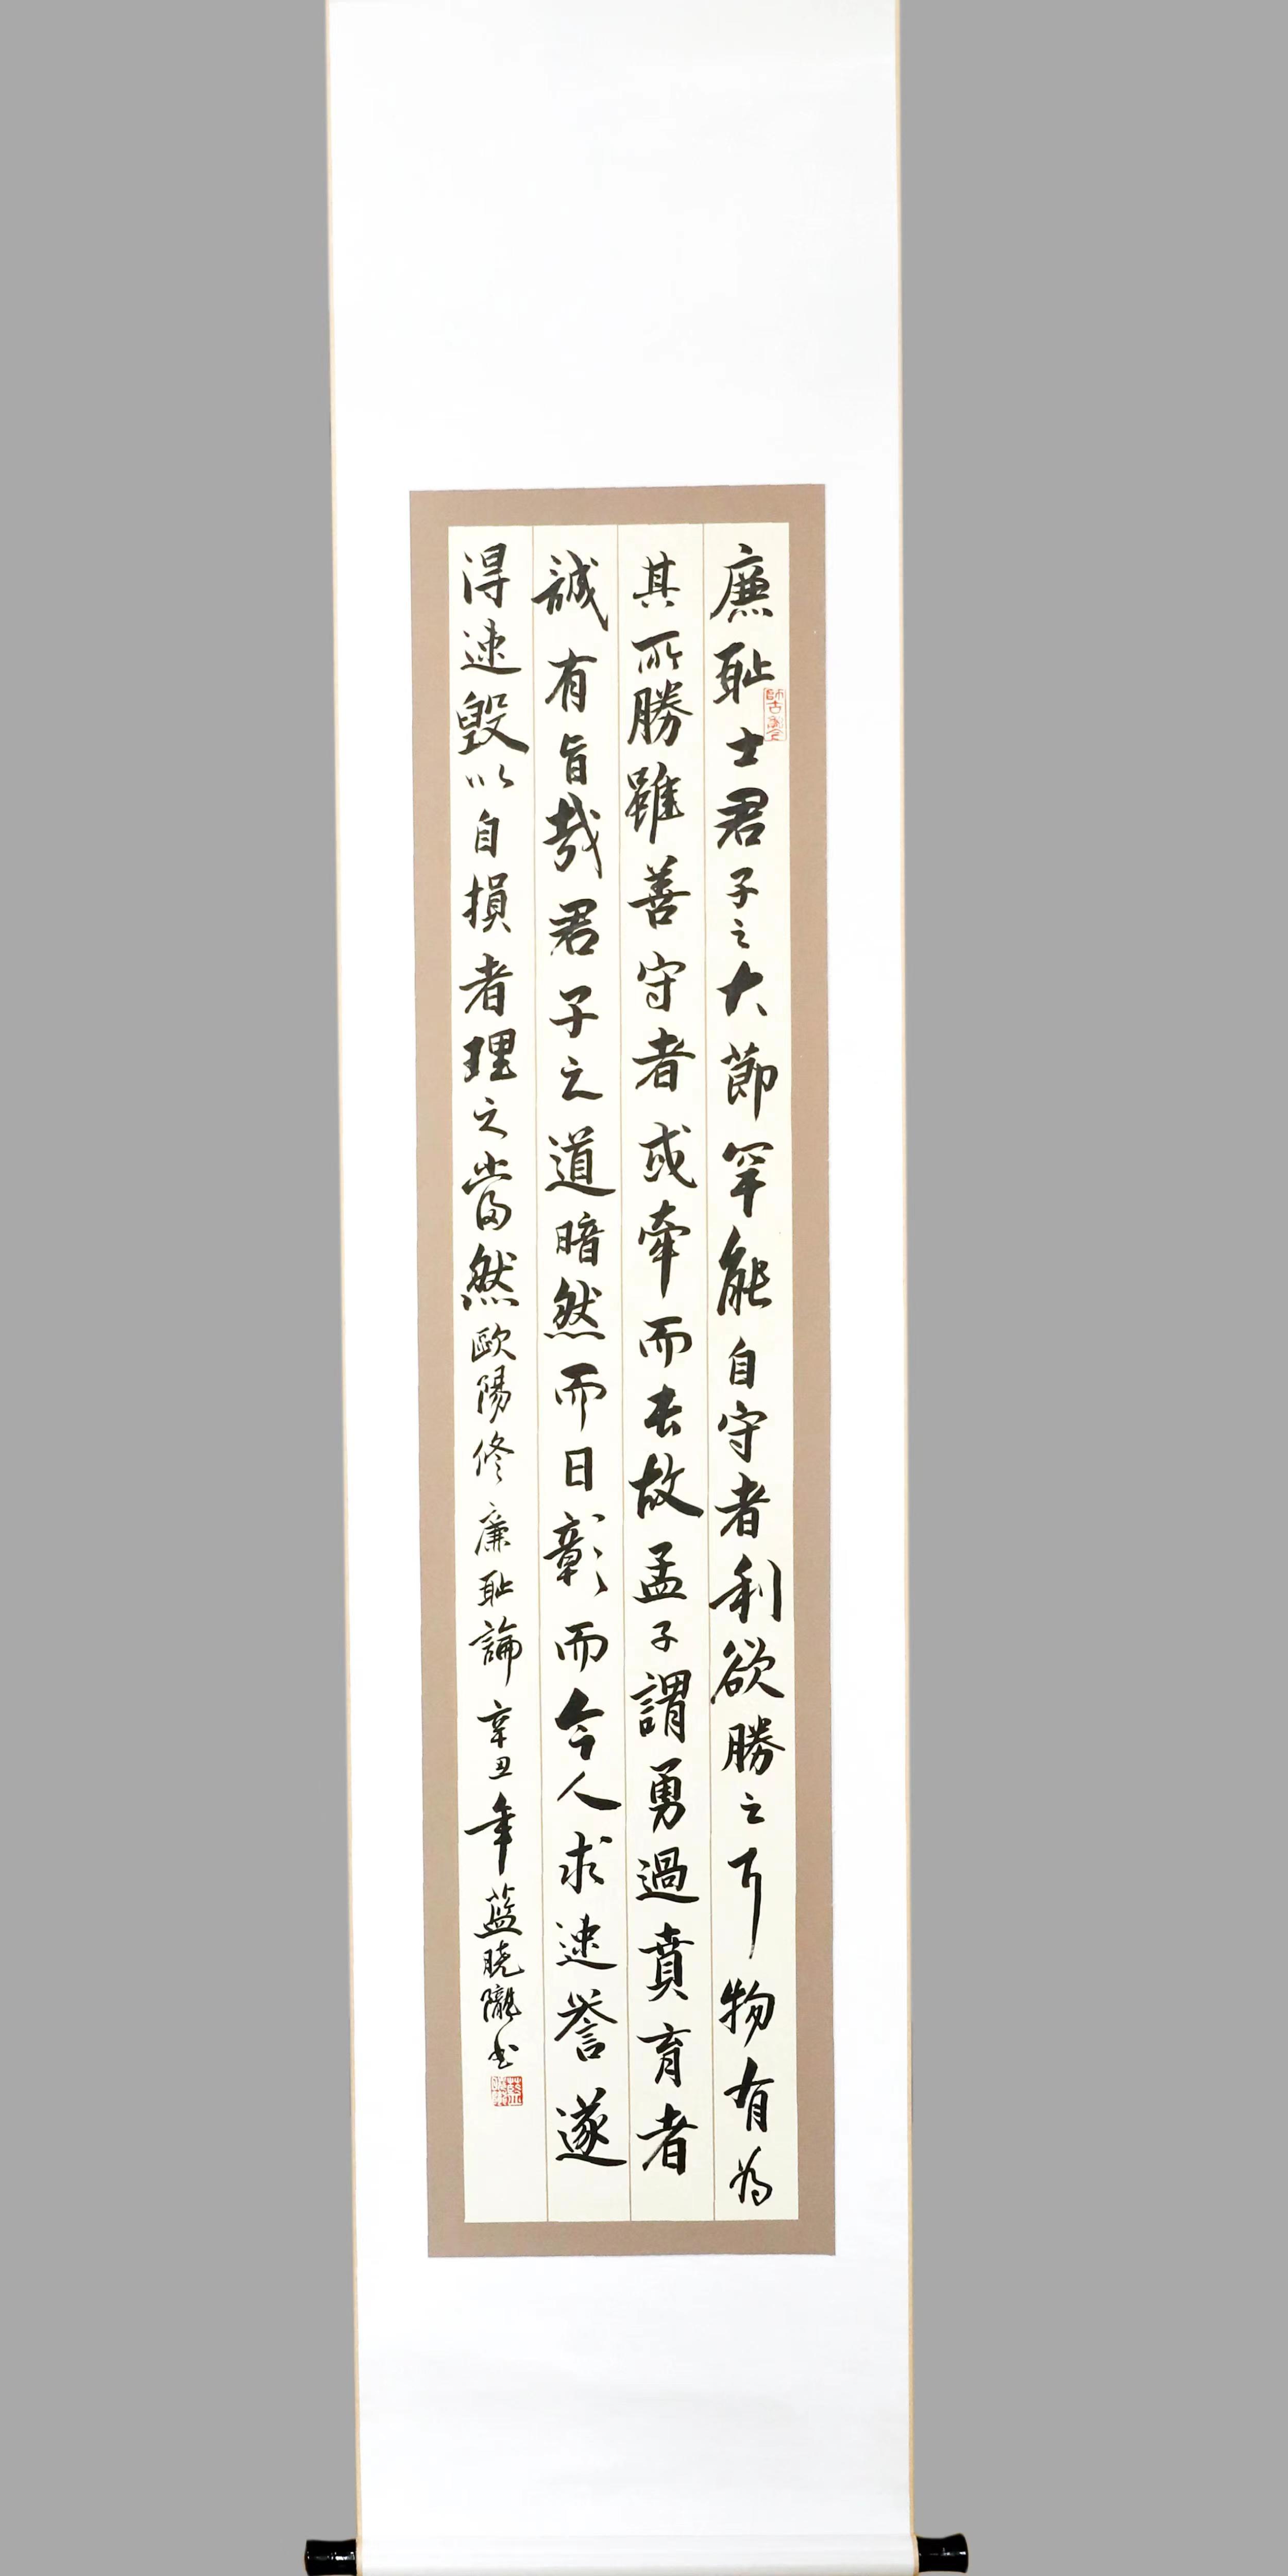 廉耻士君子之大節罕能自守者利欲勝之耳物有為
其所勝雖善守者或牽而去故孟子謂勇過賁育者
誠有旨哉君子之道暗然而日彰而今人求速譽遂
得速毀以自損者理之當然歐陽修廉耻論辛丑年藍曉隴书
師古